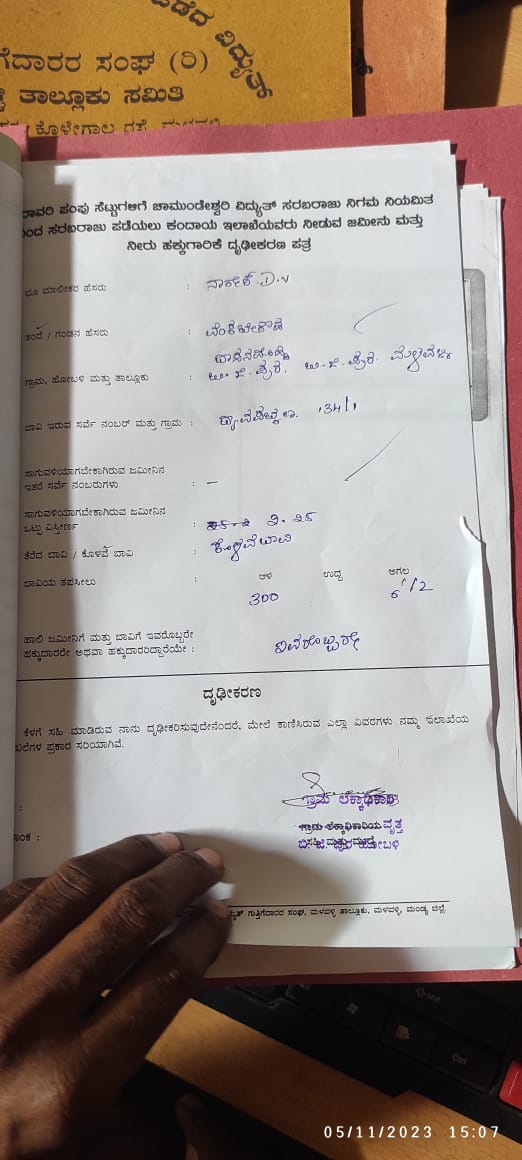 ಪಡೆದ ವಿದ್ಯುತ್
ಗೆದಾರರ ಸಂಘ (ರಿ)
ತಾಲ್ಲೂಕು ಸಮಿತಿ
ಕೊಳ್ಳೇಗಾಲ ರಸ್ತೆ, ಮಳವಳ್ಳಿ
ರಾವರಿ ಪಂಪು ಸೆಟ್ಟುಗಳಿಗೆ ಚಾಮುಂಡೇಶ್ವರಿ ವಿದ್ಯುತ್ ಸರಬರಾಜು ನಿಗಮ ನಿಯಮಿತ
ಂದ ಸರಬರಾಜು ಪಡೆಯಲು ಕಂದಾಯ ಇಲಾಖೆಯವರು ನೀಡುವ ಜಮೀನು ಮತ್ತು
ನೀರು ಹಕ್ಕುಗಾರಿಕೆ ದೃಢೀಕರಣ ಪತ್ರ
ಭೂ ಮಾಲೀಕರ ಹೆಸರು : D.V
ತಂದೆ / ಗಂಡನ ಹೆಸರು :
ಗ್ರಾಮ, ಹೋಬಳಿ ಮತ್ತು ತಾಲ್ಲೂಕು :
ಬಾವಿ ಇರುವ ಸರ್ವೆ ನಂಬರ್ ಮತ್ತು ಗ್ರಾಮ : 134/1
ಸಾಗುವಳಿಯಾಗಬೇಕಾಗಿರುವ ಜಮೀನಿನ
ಇತರೆ ಸರ್ವೆ ನಂಬರುಗಳು : –
ಸಾಗುವಳಿಯಾಗಬೇಕಾಗಿರುವ ಜಮೀನಿನ
ಒಟ್ಟು ವಿಸ್ತೀರ್ಣ :
ತೆರೆದ ಬಾವಿ / ಕೊಳವೆ ಬಾವಿ : ಕೊಳವೆಬಾವಿ
ಬಾವಿಯ ತಪಸೀಲು : ಆಳ ಉದ್ದ ಅಗಲ
300 6 1/2
ಹಾಲಿ ಜಮೀನಿಗೆ ಮತ್ತು ಬಾವಿಗೆ ಇವರೊಬ್ಬರೇ
ಹಕ್ಕುದಾರರೇ ಅಥವಾ ಹಕ್ಕುದಾರರಿದ್ದಾರೆಯೇ : ಇವರೊಬ್ಬರೇ
ದೃಢೀಕರಣ
ಕೆಳಗೆ ಸಹಿ ಮಾಡಿರುವ ನಾನು ದೃಢೀಕರಿಸುವುದೇನೆಂದರೆ, ಮೇಲೆ ಕಾಣಿಸಿರುವ ಎಲ್ಲಾ ವಿವರಗಳು ನಮ್ಮ ಇಲಾಖೆಯ
ಲೆಗಳ ಪ್ರಕಾರ ಸರಿಯಾಗಿವೆ.
:
ಗ್ರಾಮ ಲೆಕ್ಕಾಧಿಕಾರಿ
ಾಂಕ : ಗ್ರಾಮ ಲೆಕ್ಕಾಧಿಕಾರಿಯ ವೃತ್ತ
ಹೋಬಳಿ
ದ್ಯುತ್ ಗುತ್ತಿಗೆದಾರರ ಸಂಘ, ಮಳವಳ್ಳಿ ತಾಲ್ಲೂಕು, ಮಳವಳ್ಳಿ, ಮಂಡ್ಯ ಜಿಲ್ಲೆ.
Shift
Ctrl
05/11/2023 15:07